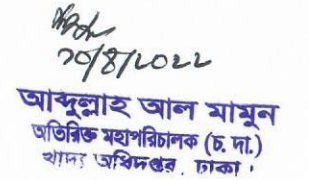 ১০/8/২০২২
আব্দুল্লাহ আল মামুন
অতিরিক্ত মহাপরিচালক (চ. দা.)
খাদ্য অধিদপ্তর, ঢাকা।